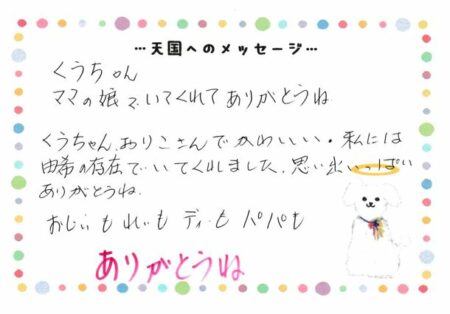 …天国へのメッセージ…
くうちゃん
ママの娘でいてくれてありがとうね
くうちゃん、おりこさんでかわいい・私には
由希の存在でいてくれました、思い出いっぱい
ありがとうね、
おじいもれいもディもパパも
ありがとうね